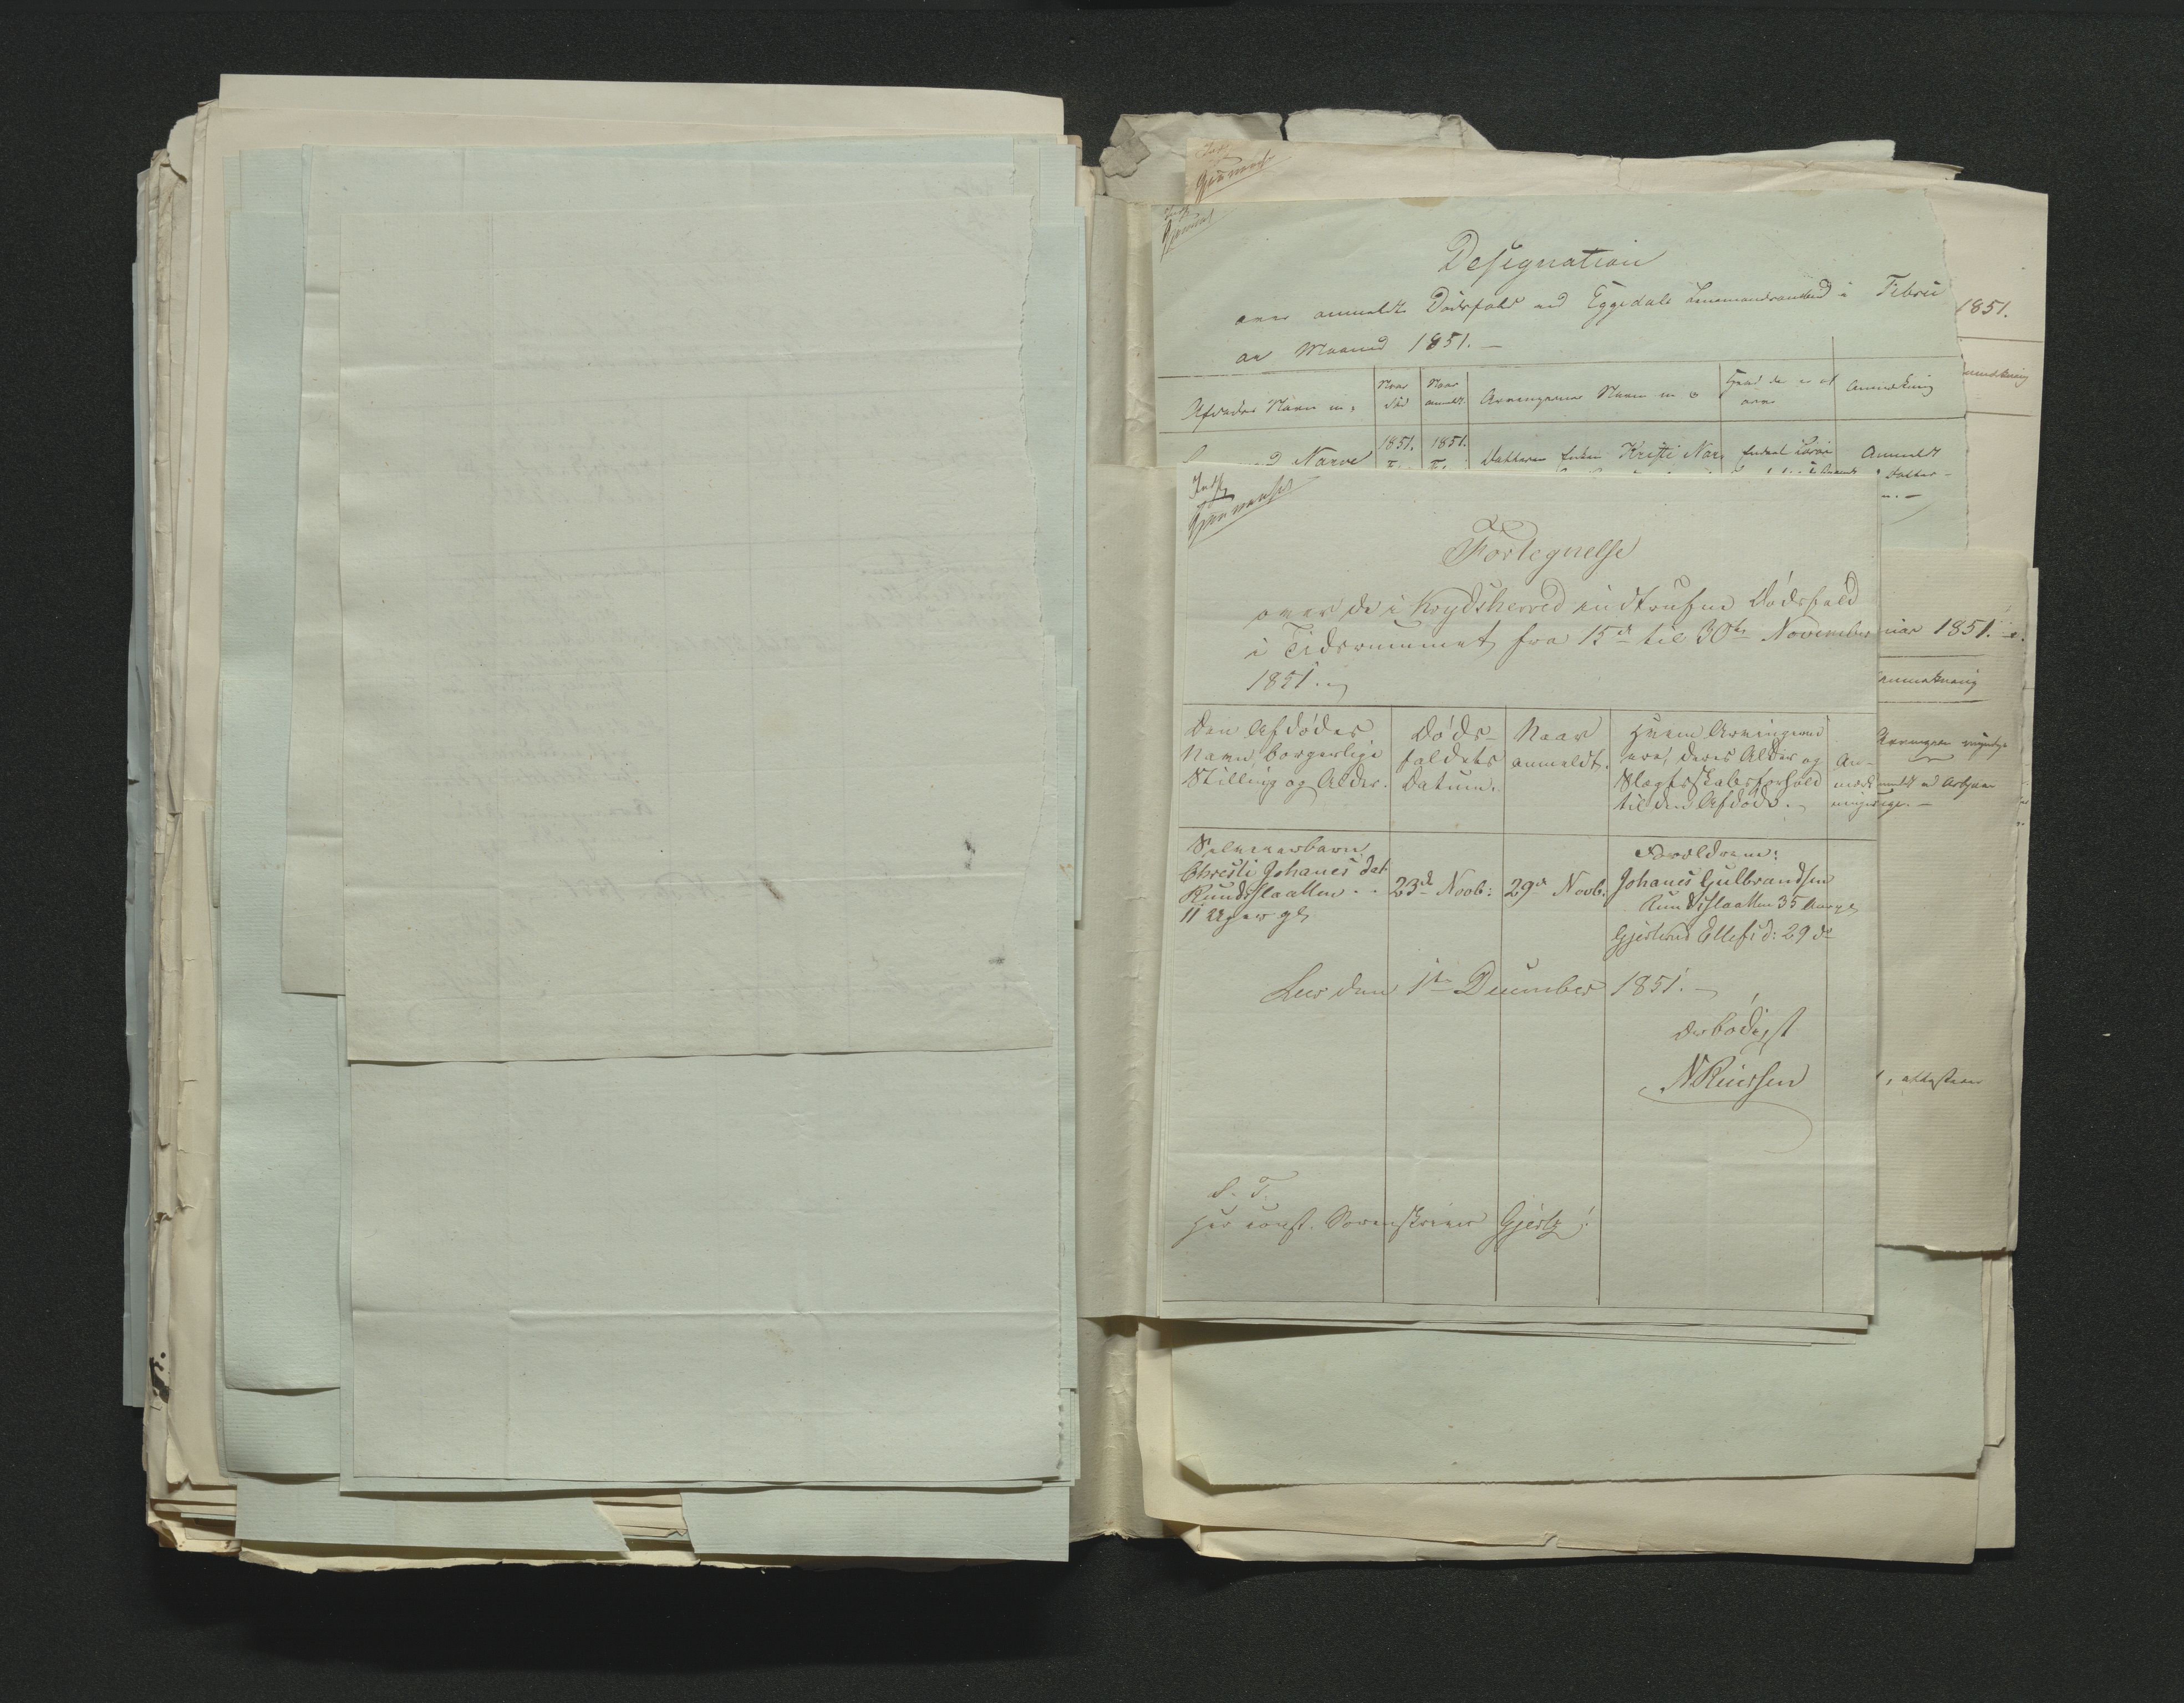 Designation
over anmeldte Dødsfald ved Eggedals Lensmandsombud i Februar
ar Maaned 1851. —
Afdødes Navn m.
Naar
død
Naar
anmeldt.
Arvingernes Navn m
Hvad der er at
arve
Anmærkning
Narve
1851.
1851.
Datteren Enken Kristi Nar
Anmeldt
datter
1851.
Anmærkning
Fortegnelse
over de i Krydsherred indtrufne Dødsfald
i Tidsrummet fra 15de til 30te November
1851.
Den Afdødes
Navn, borgerlige
Stilling og Alder.
Døds-
faldets
Datum.
Naar
anmeldt.
Hvem Arvingerne
ere, deres Alder og
Slægtskabsforhold
til den Afdøde.
An-
mærk
ninger
Selveierbarn
Christi Johanes Dat.
Ruudsslaatten
11 Uger gl
23de Novb:
29de Novb.
Forældrene:
Johanes Gulbrandsen
Ruudsslaatten 35 Aar gl
Gjertrud Ellefsd: 29 de
Leer den 1te December 1851. —
Ærbødigst
N Ruissen
S. T.
Hr const. Sorenskriver Gjertz!
uar 1851.
Anmærkning
Arvingen myndige
attesterer